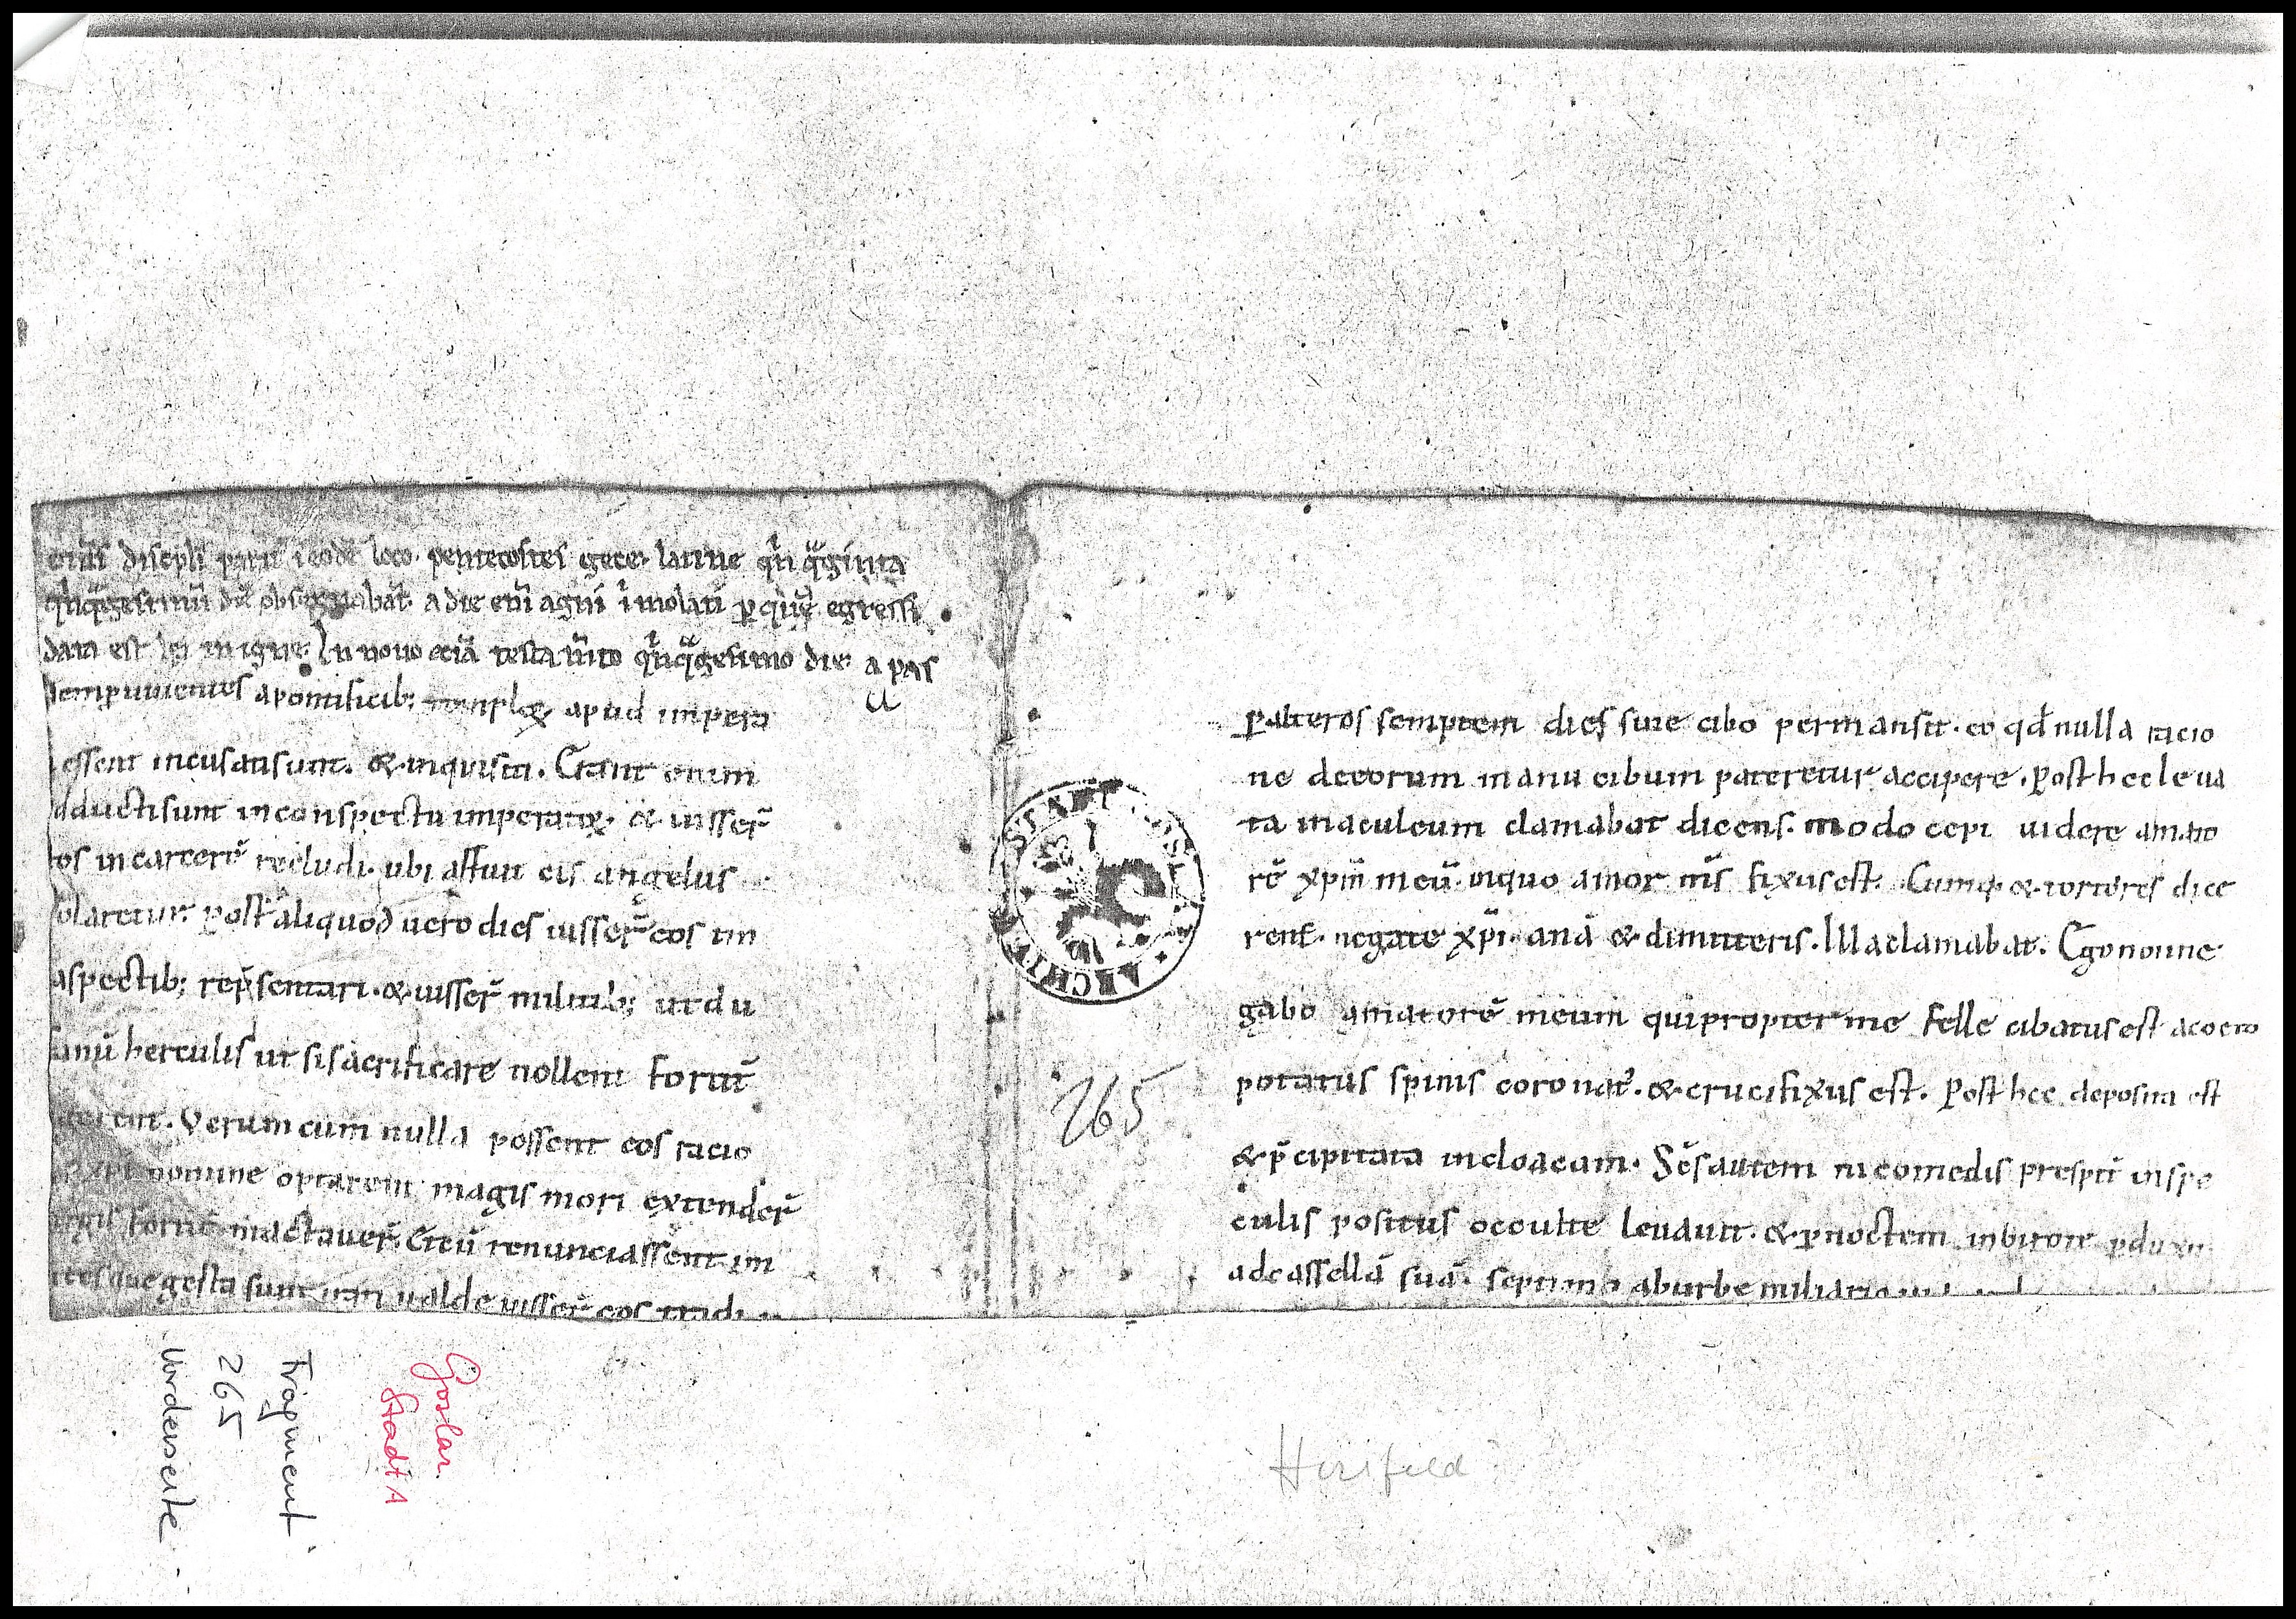 discipli pariť i eodē loco. pentecostes grece. latine qͥnqͣginta
qͥnqͣgesimū diē obseruabāt. a die enī agni īmolati ꝑ quē egressi
data est lex in igne. In nouo eciā testam̄to qͥnqͣgesimo die a pas
apontificib; temploꝝ apud impera
a
essent incusatisunt. & inquisiti. Erant enim
dductisunt inconspectu imperatoꝝ. & iusser̄
os incarcerē recludi. ubi astitit eis angelus
olaretur. post aliquod uero dies iusser̄ eos im
aspectib; rep̄sentari. & iusser̄ militib; ut du
fanū herculis ut si sacrificare nollent fortit̄
Verum cum nulla possent eos racio
nomine optarent magis mori extender̄
fortit̄ mactauer̄. Et cū renunciassent im
quegesta sunt irati ualde iusser̄ eos tradi
ꝑalteros semptem dies sine cibo permansit. eo qđ nulla racio
ne deeorum manu cibum pateretur accipere. Post hec leua
ta inaculeum clamabat dicens. modo cepi uidere amato
rē xp̄m meū. inquo amor m̄s fixus est. Cumq; & tortores dice
rent. negate xp̄i anā & dimitteris. Illa clamabat. Ego nonne
gabo amatorē meum quipropter me felle cibatus est aceto
potatus spinis coronat̄. & crucifixus est. Post hec deposita est
& p̄cipitata incloacam. Sc̄s autem nicomedis presp̄ti inspe
culis positus occulte leuauit. & ꝑnoctem inbirote pduxit
adcassellā suā. septimo aburbe miliario
ARCHIV
265
Goslar
StadtA
Fragment
265
Vorderseite
Hersfeld